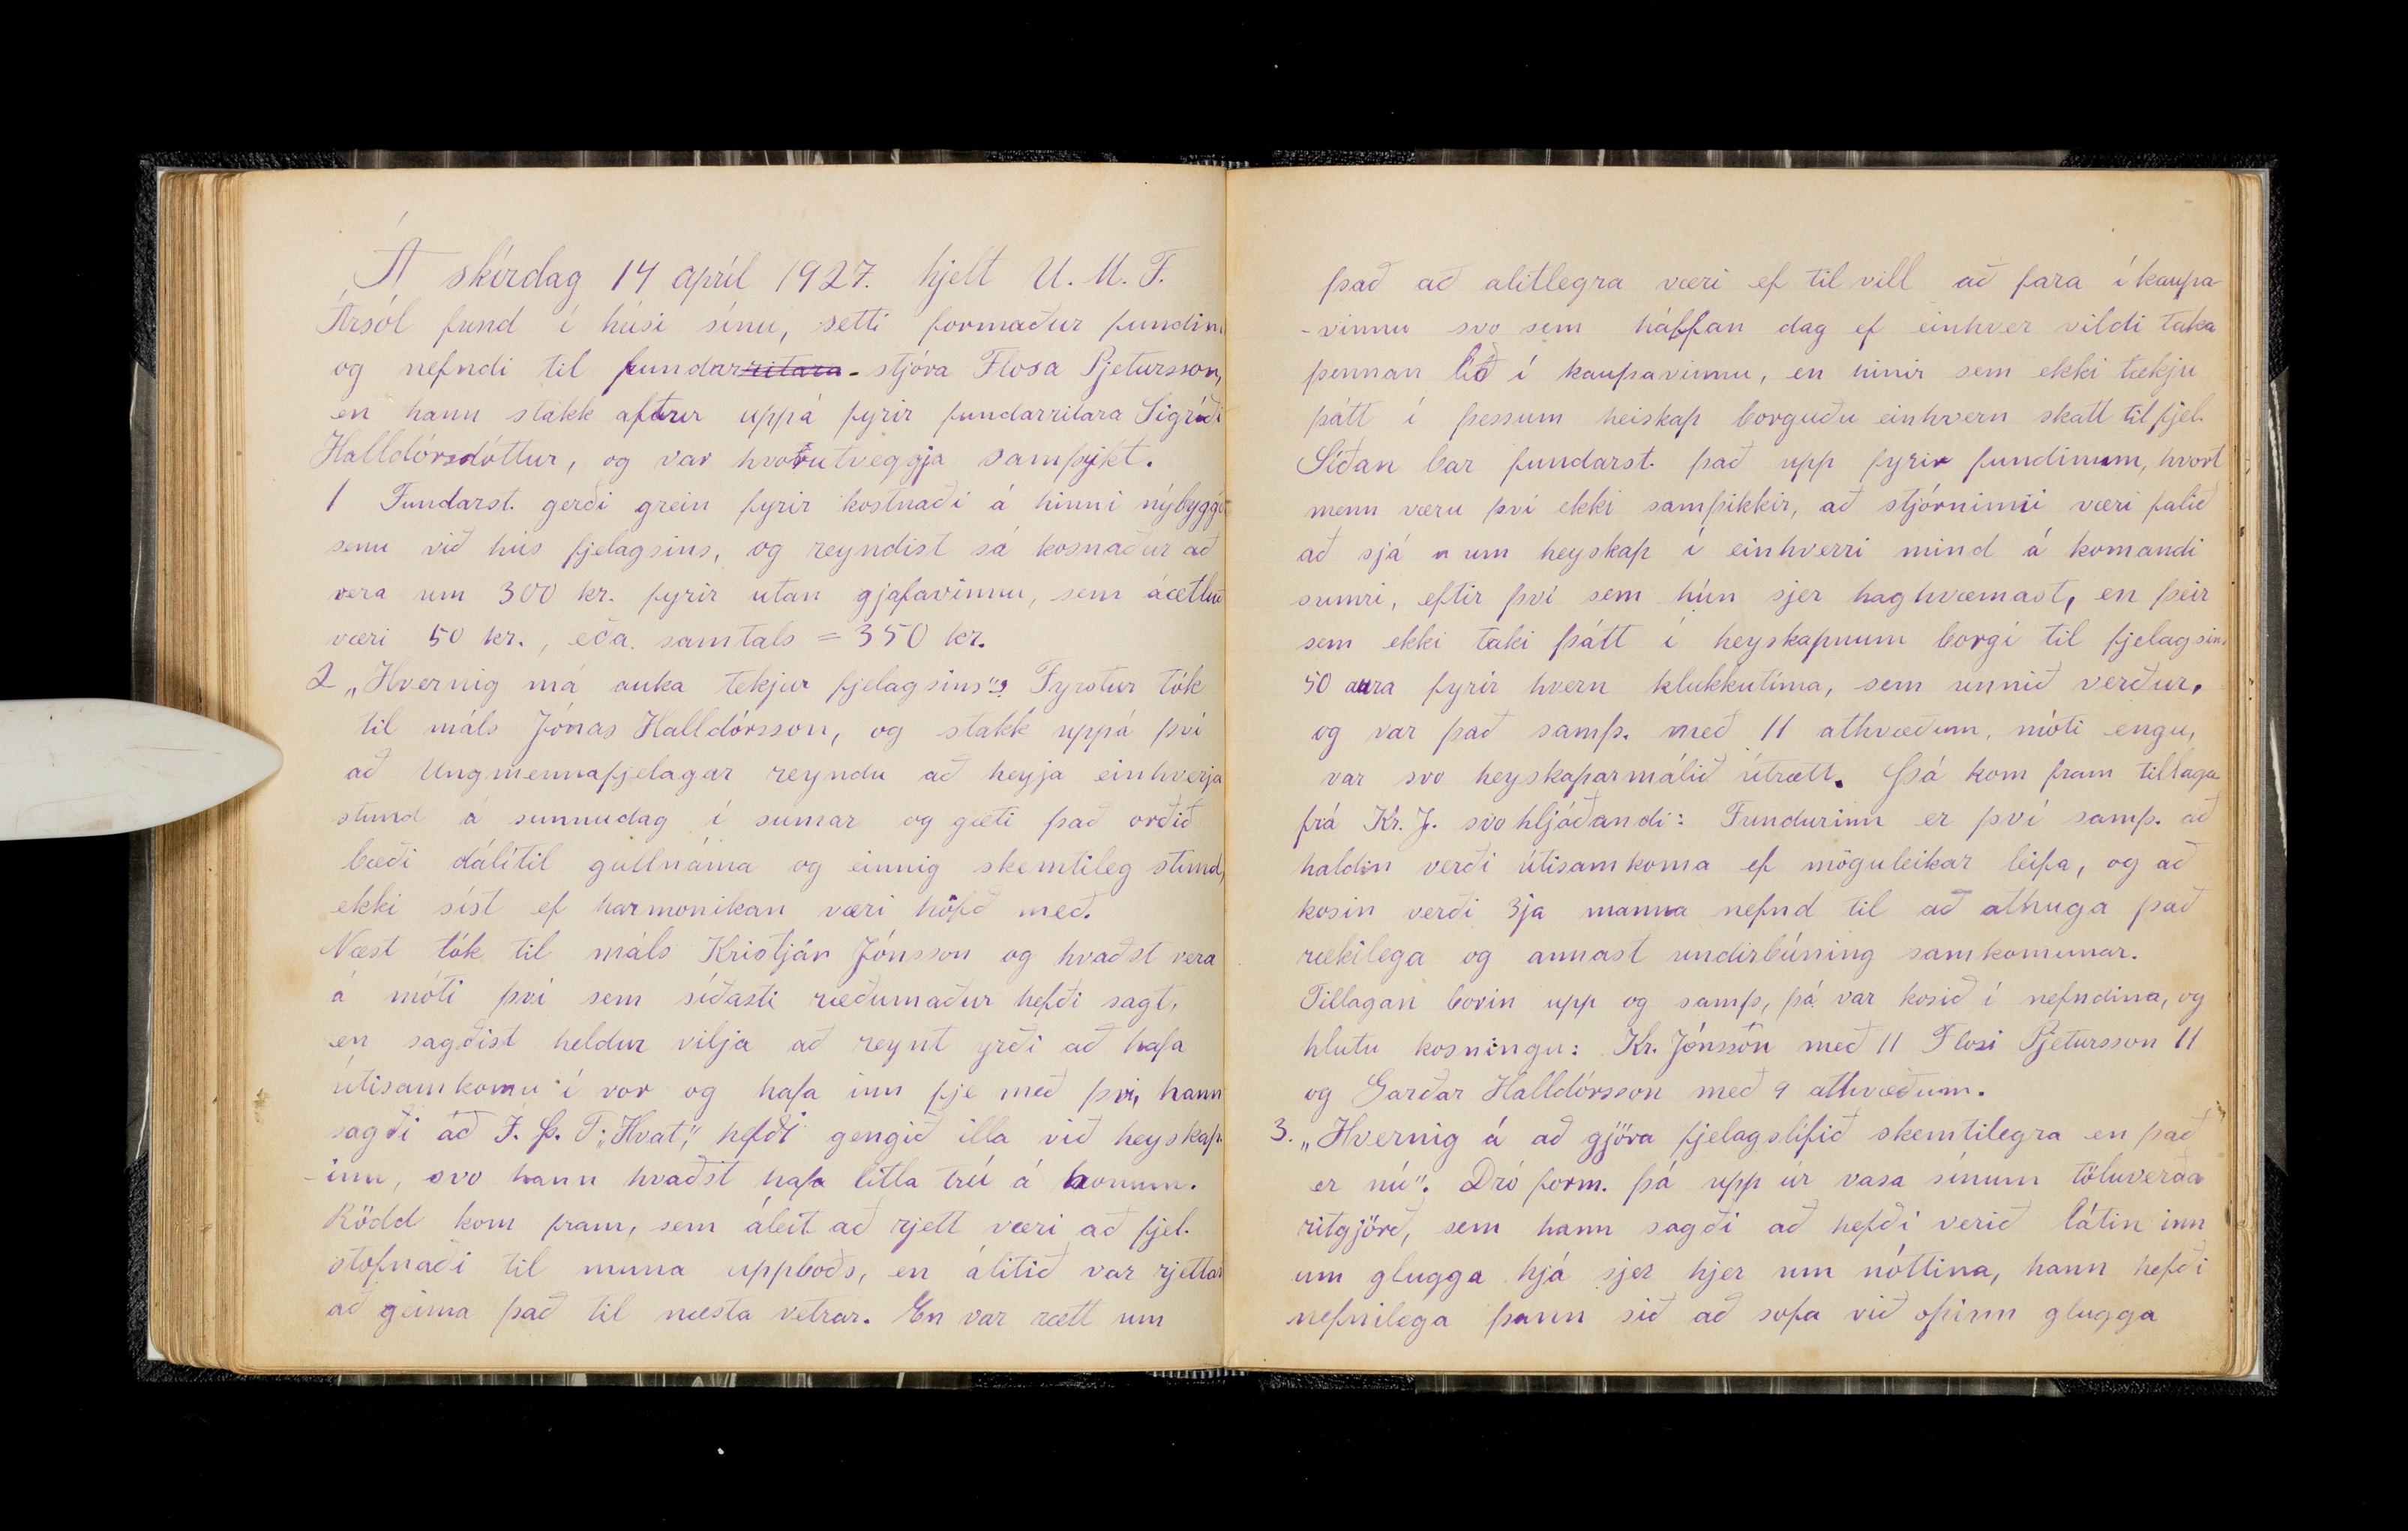 Á skírdag 14 apríl 1927. hjelt U. M. F.
Ársól fund í húsi sínu, setti formaður fundin
og nefndi til fundarritara - stjóra Flosa Pjetursson,
en hann stakk aftur uppá fyrir fundarritara Sigríði
Halldórsdóttur, og var hvorutveggja samþykt.
1 Fundarst. gerði grein fyrir kostnaði á hinni nýbygg
senu við hús fjelagsins, og reyndist sá kosnaður að
vera um 300 kr. fyrir utan gjafavinnu, sem áætlu
væri 50 kr., eða samtals = 350 kr.
2 „Hvernig má auka tekjur fjelagsins"? Fyrstur tók
til máls Jónas Halldórsson, og stakk uppá því
að Ungmennafjelagar reyndu að heyja einhverja
stund á sunnudag í sumar og gæti það orðið
bæði dálítil gullnáma og einnig skemtileg stund,
ekki síst ef harmonikan væri höfð með.
Næst tók til máls Kristján Jónsson og hvaðst vera
á móti því sem síðasti ræðumaður hefði sagt,
en sagðist heldur vilja að reynt yrði að hafa
útisamkomu í vor og hafa inn fje með því, hann
sagði að F. Þ. T. „Hvat", hefði gengið illa við heyskap
-inn, svo hann hvaðst hafa litla trú á honum.
Rödd kom fram, sem áleit að rjett væri að fjel.
stofnaði til muna uppboðs, en álitið var rjettar
að geima það til næsta vetrar. En var rætt um
það að alitlegra væri ef til vill að fara í kaupa
-vinnu svo sem hálfan dag ef einhver vildi taka
þennan lið í kaupavinnu, en hinir sem ekki tækju
þátt í þessum heiskap borguðu einhvern skatt til fjel.
Síðan bar fundarst. það upp fyrir fundinum, hvort
menn væru því ekki samþikkir, að stjórninni væri falið
að sjá um heyskap í einhverri mind á komandi
sumri, eftir því sem hún sjer haghvæmast, en þeir
sem ekki taki þátt í heyskapnum borgi til fjelagsins
50 aura fyrir hvern klukkutíma, sem unnið verður,
og var það samþ. með 11 athvæðum, móti engu,
var svo heyskaparmálið útrætt. Þá kom fram tillaga
frá Kr. J. svohljóðandi: Fundurinn er því samþ. að
haldin verði útisamkoma ef möguleikar leifa, og að
kosin verði 3ja manna nefnd til að athuga það
rækilega og annast undirbúning samkomunar.
Tillagan borin upp og samþ, þá var kosið í nefndina, og
hlutu kosningu: Kr. Jónsson með 11 Flosi Pjetursson 11
og Garðar Halldórsson með 9 athvæðum.
3. „Hvernig á að gjöra fjelagslífið skemtilegra en það
er nú". Dró form. þá upp úr vasa sínum töluverða
ritgjörð, sem hann sagði að hefði verið látin inn
um glugga hjá sjer hjer um nóttina, hann hefði
nefnilega þann sið að sofa við opinn glugga